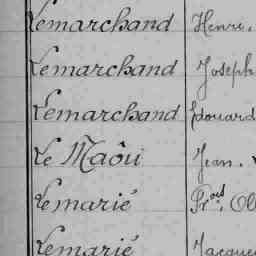 Lemarchand Henri.
Lemarchand Joseph
Lemarchand Edouard
Le Maôu Jean.
Lemarié
Lemarié Jacques